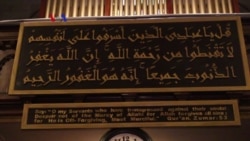 قل ياعبادي الذين أسرفوا على أنفسهم
لا تقنطوا من رحمة الله إن الله يغفر
الذنوب جميعا إنه هو الغفور الرحيم
Say: "O my Servants who have transgressed against their souls!
Despair not of the Mercy of Allah! for Allah forgives all sins:
for He is Oft-Forgiving, Most Merciful." Qur'an, Zumar:53